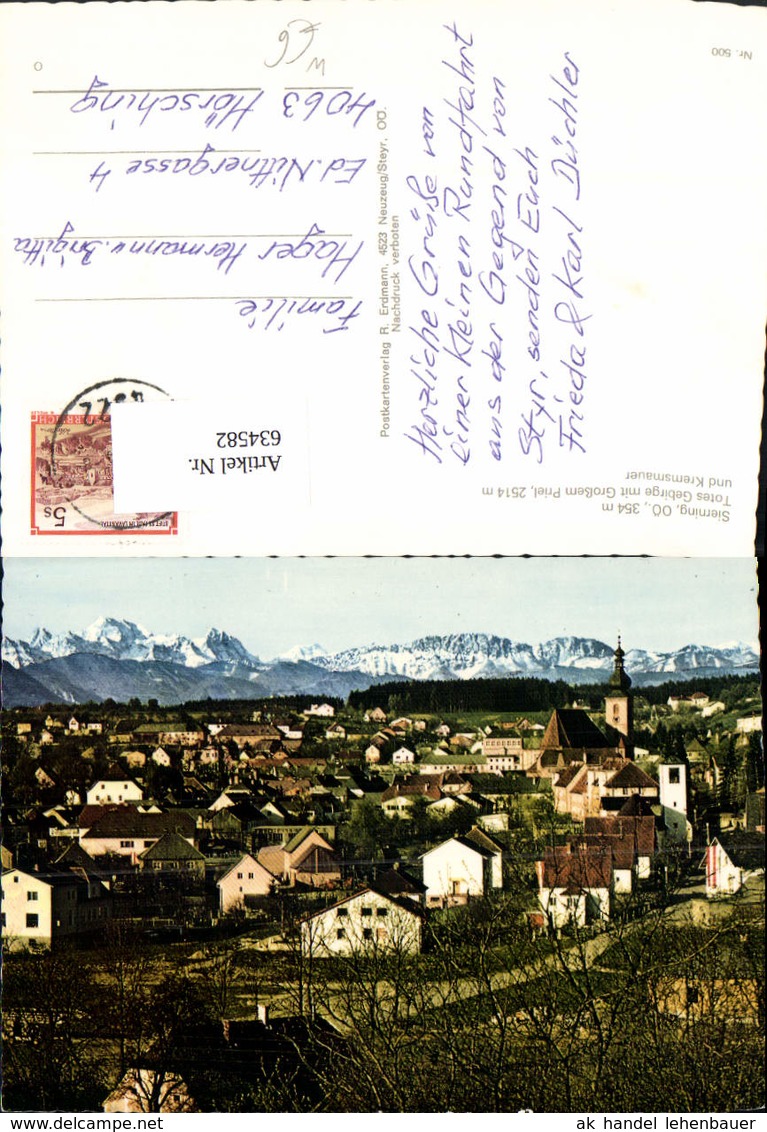 Sierning, OÖ., 354 m
Totes Gebirge mit Großem Priel, 2514 m
und Kremsmauer
Herzliche Grüße von
einer kleinen Rundfahrt
aus der Gegend von
Styr, senden Euch
Frieda & Karl Düchler
Postkartenverlag R. Erdmann, 4523 Neuzeug/Steyr, OÖ.
Nachdruck verboten
5s
Artikel Nr.
634582
Familie
Hager Hermann u. Brigitta
Ed. Nittnergasse 4
4063 Hörsching
Nr. 500
ak handel lehenbauer